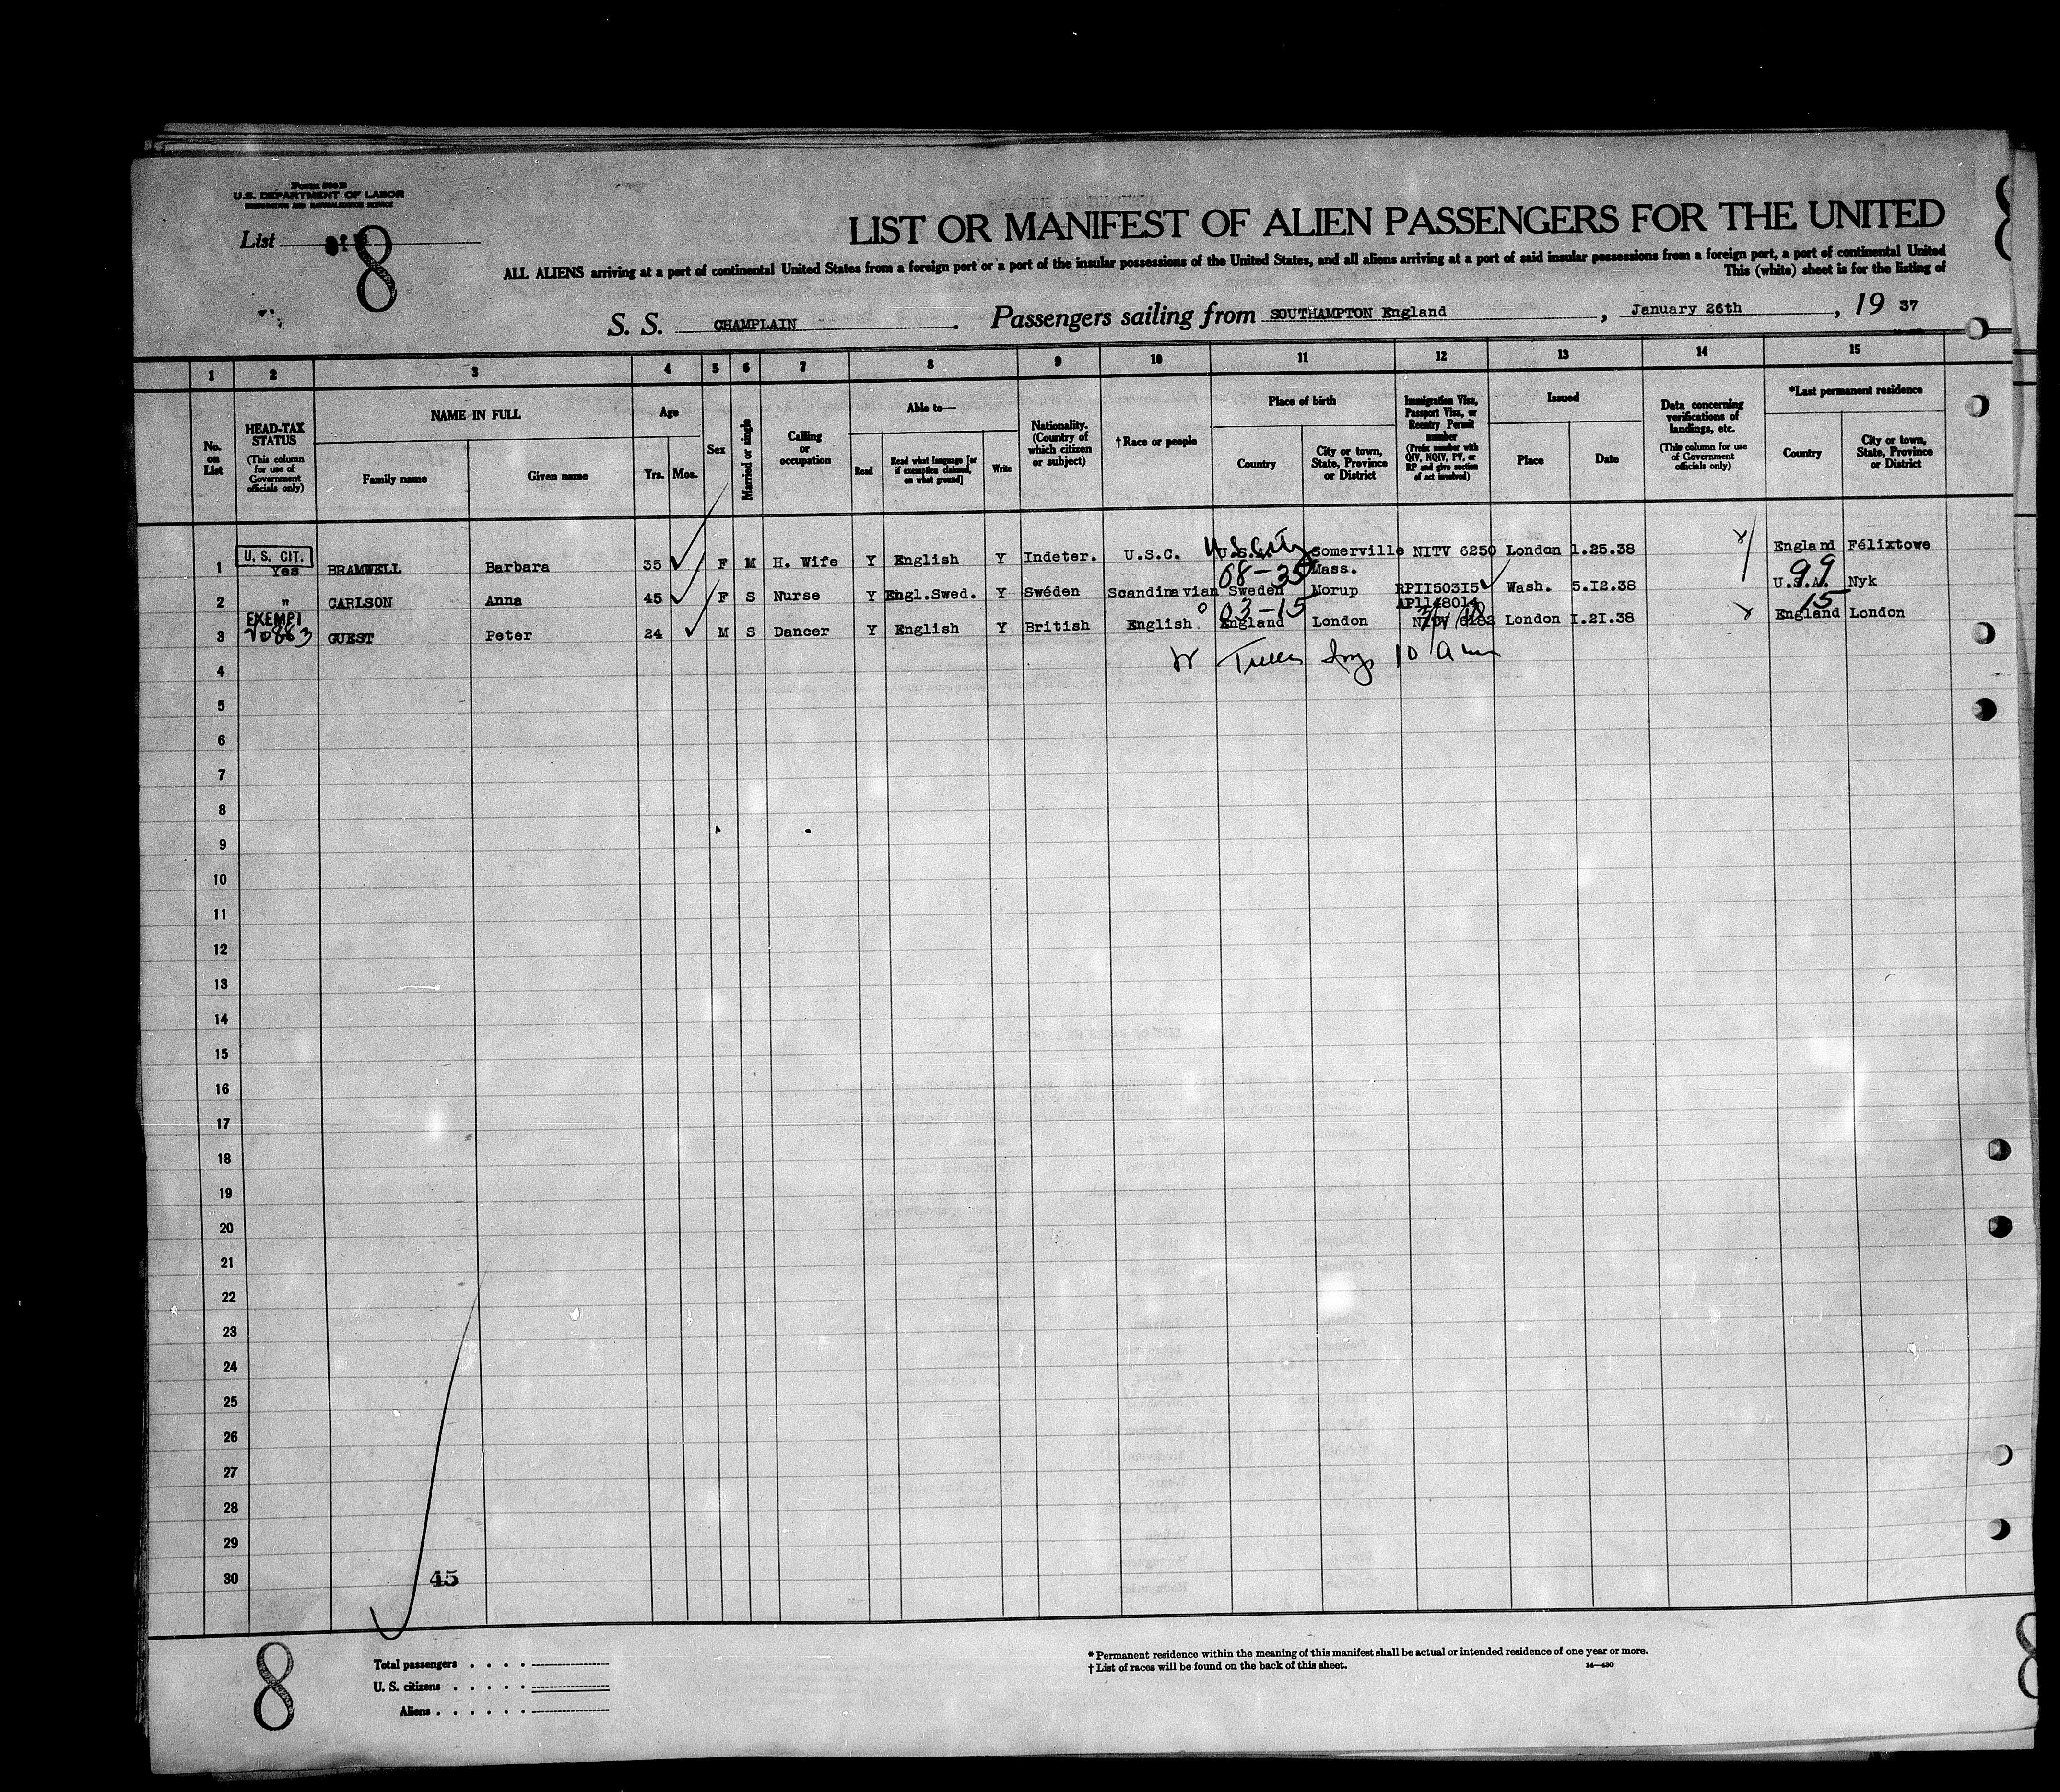 Form 500 B
U.S. DEPARTMENT OF LABOR
IMMIGRATION AND NATURALIZATION SERVICE
List 8
LIST OR MANIFEST OF ALIEN PASSENGERS FOR THE UNITED
ALL ALIENS arriving at a port of continental United States from a foreign port or a part of the insular possessions of the United States, and all aliens arriving at a port of said insular possessions from a foreign port, a part of continental United
This (white) sheet is for the listing of
S. S. CHAMPLAIN. Passengers sailing from SOUTHAMPTON England, January 26th, 19 37
1 2 3 4 5 6 7 8 9 10 11 12 13 14 15
No. on List
HEAD-TAX STATUS (This column for use of Government officials only)
NAME IN FULL
Family name Given name
Age
Yrs. Mos.
Sex
Married or single
Calling or occupation
Able to—
Read
Read what language [or if exemption claimed, on what ground]
Write
Nationality. (Country of which citizen or subject)
† Race or people
Place of birth
Country
City or town, State, Province or District
Immigration Visa, Passport Visa, or Reentry Permit number (Prefix number with QIV, NQIV, PV, or RP and give section of act involved)
Issued
Place Date
Data concerning verifications of landings, etc. (This column for use of Government officials only)
*Last permanent residence
Country
City or town, State, Province or District
U. S. CIT.
1 Yes BRAMWELL Barbara 35 F M H. Wife Y English Y Indeter. U.S.C. U.S.A. Somerville Mass. NITV 6250 London 1.25.38 England Félixtowe
08-35 99
2 " CARLSON Anna 45 F S Nurse Y Engl.Swed. Y Swéden Scandinavian Sweden Morup RPII50315 Wash. 5.I2.38 U.S.A. Nyk
03-15 15
3 GUEST Peter 24 M S Dancer Y English Y British English England London London I.2I.38 England London
4 10 a m
5
6
7
8
9
10
11
12
13
14
15
16
17
18
19
20
21
22
23
24
25
26
27
28
29
30 45
8
Total passengers . . . .
U. S. citizens . . . . .
Aliens . . . . . .
* Permanent residence within the meaning of this manifest shall be actual or intended residence of one year or more.
† List of races will be found on the back of this sheet. 14—430